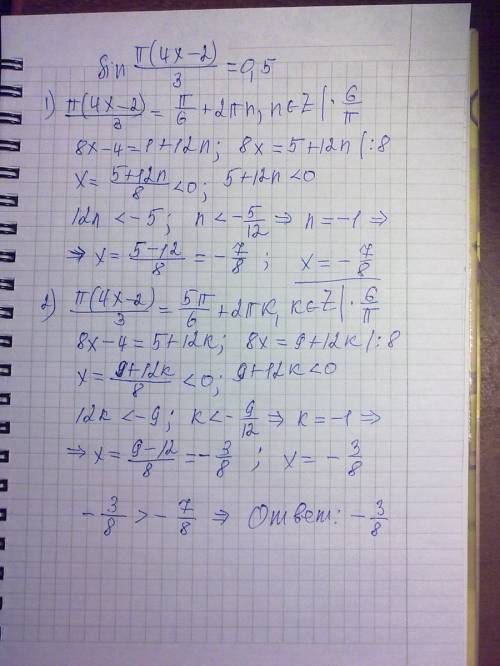 sin π(4x-2)/3 = 0,5
1) π(4x-2)/3 = π/6 + 2πn, n∈Z | · 6/π
8x-4=1+12n; 8x=5+12n |:8
x= (5+12n)/8 <0; 5+12n<0
12n<-5; n<-5/12 ⇒ n=-1 ⇒
⇒ x= (5-12)/8 = -7/8; x=-7/8
2) π(4x-2)/3 = 5π/6 + 2πk, k∈Z | · 6/π
8x-4=5+12k; 8x=9+12k |:8
x= (9+12k)/8 <0; 9+12k<0
12k<-9; k<-9/12 ⇒ k=-1 ⇒
⇒ x= (9-12)/8 = -3/8; x=-3/8
-3/8 > -7/8 ⇒ Ответ: -3/8